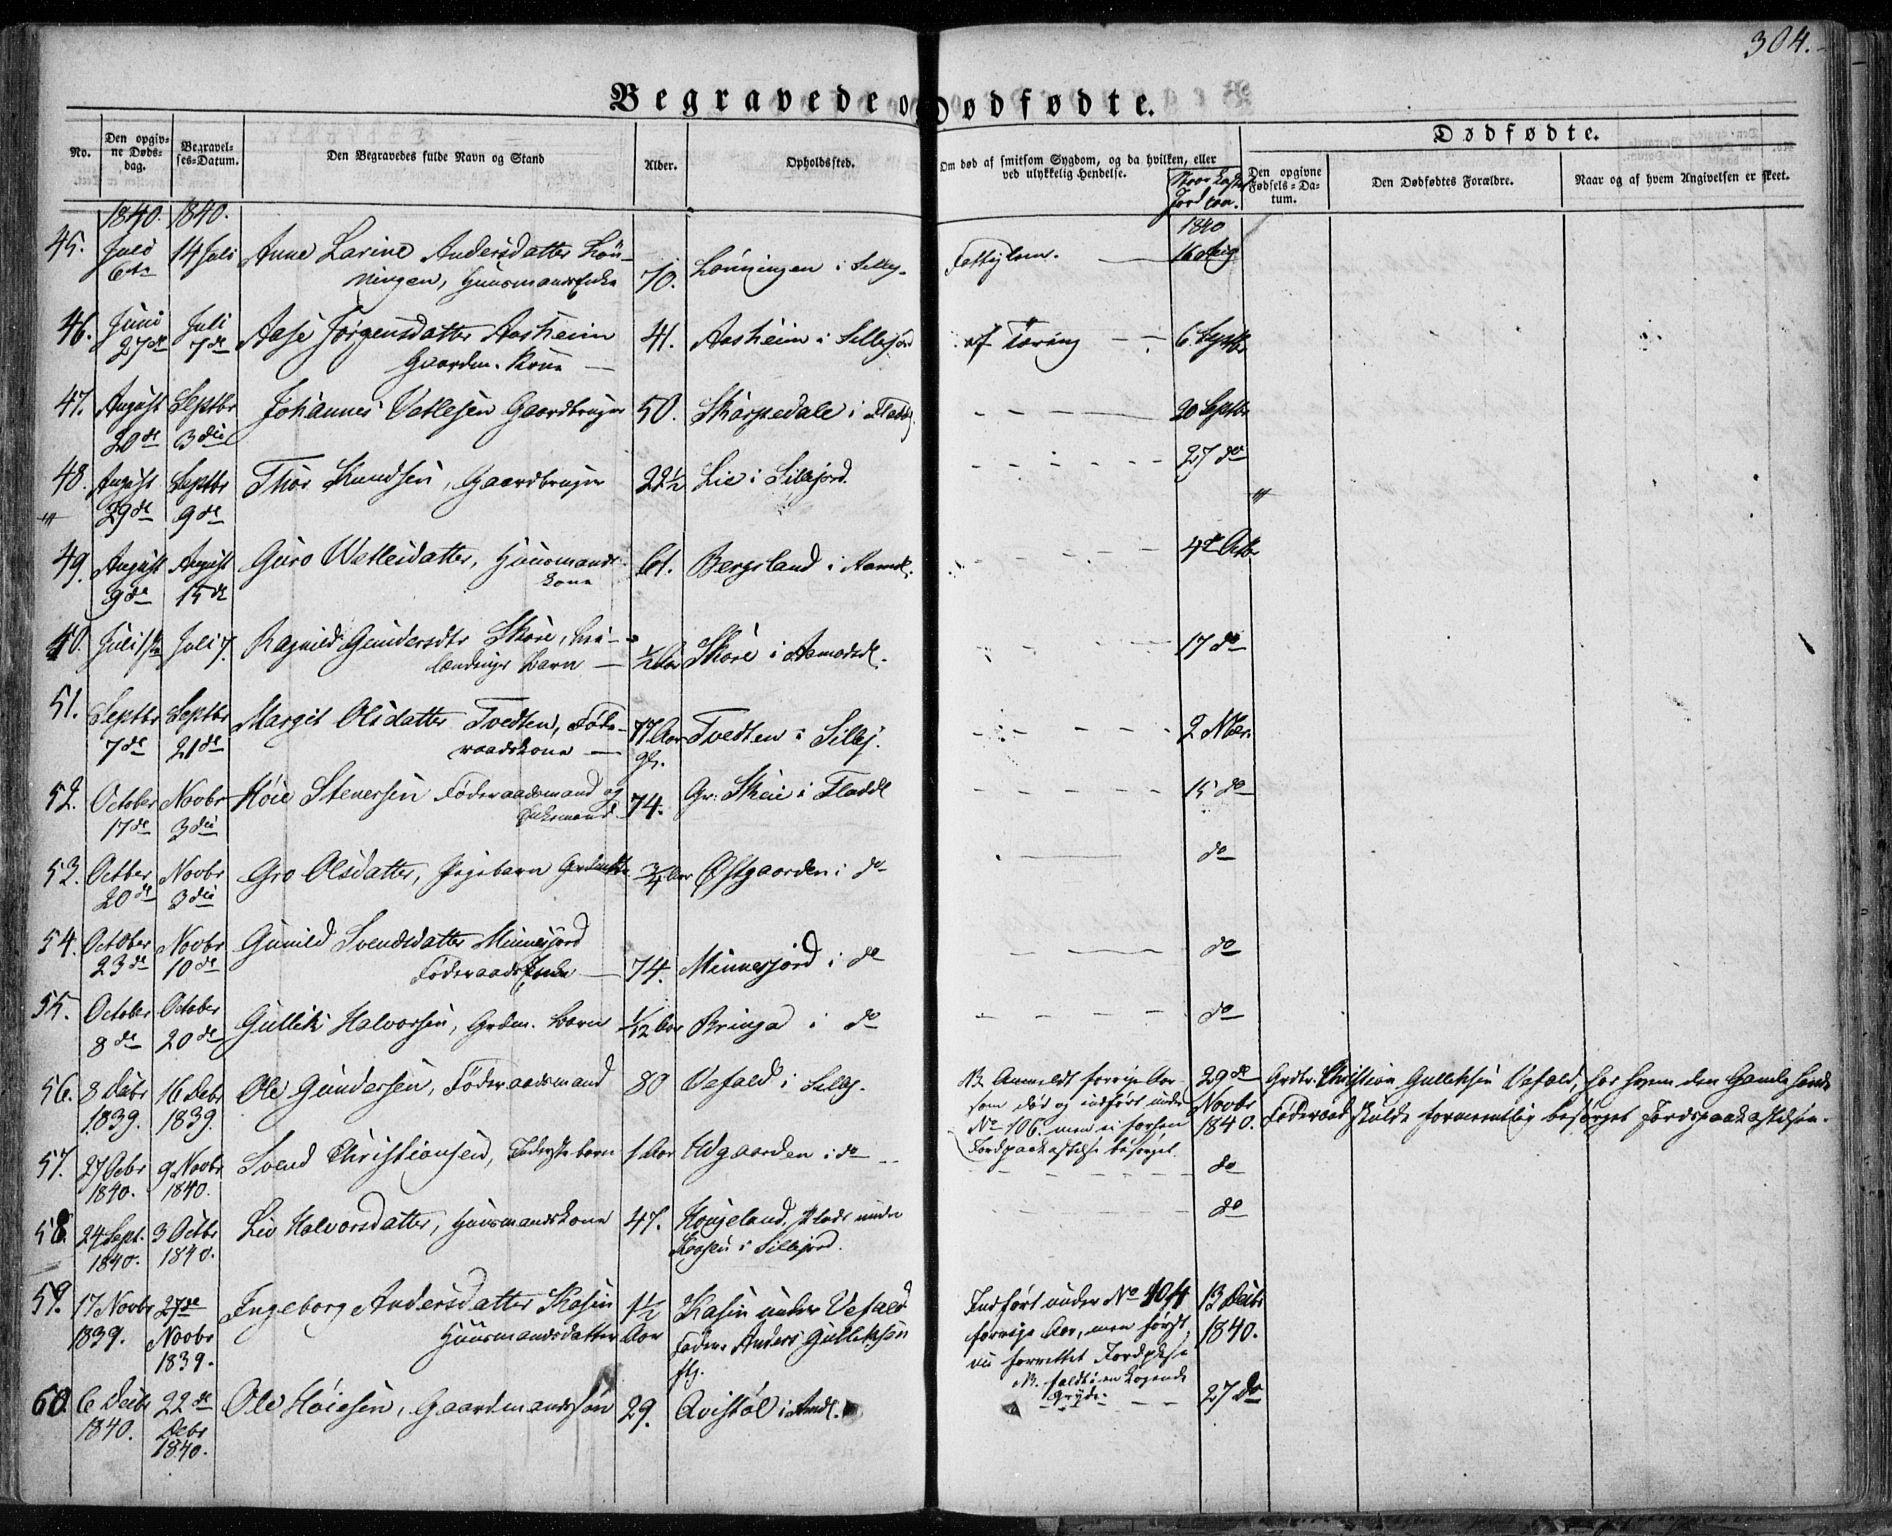 304.
Begravede o Dødfødte.
No. Den opgivne Dødsdag. Begravelses-Datum. Den Begravedes fulde Navn og Stand Alder. Opholdssted. Om død af smitsom Sygdom, og da hvilken, eller ved ulykkelig Hendelse. Dødfødte.
Den opgivne Fødsels-Datum. Den Dødfødtes Forældre. Naar og af hvem Angivelsen er skeet.
1840. 1840. 1840
45. Juli 6te 14 Juli Anne Larine Andersdatter Løn-
ningen, Huusmandsenke 70. Lønningen i Sillej. 16 Aug
46. Juni 27de Juli 7de Aase Jørgensdatter Aasheim
Gaardm. Kone 41. Aasheim i Sillejord af Tæring 6 Septbr
47. August 20de Septbr 3die Johannes Vetlesen Gaardbruger 50. Skarpedale i Fladd 20 Septbr
48. August 29de Septbr 9de Thor Knudsen, Gaardbruger 22½ Lie i Sillejord. 27 do
49. August 9de August 15de Guro Vetlesdatter, Huusmands-
kone 61. Bergsland i Aamdl. 4de Octb
50. Juli 1ste Juli 7. Ragnild Gundersdtr Skore, In-
barn ½ Aar Skore i Aamodsdl. 17 do
51. Septbr 7de Septbr 21de Margit Olsdatter Tvedten, Føde-
raadskone 77 Aar gl. Tvedten i Sillej. 2 Nbr.
52. October 17de Novbr 3die Høie Stenersen Føderaadsmand og
Enkemand 74. Gr. Skeie i Fladdl 15 do
53. Octber 20de Novbr 3die Gro Olsdatter, Pigebarn ¾ Aar Østgaarden i do do
54. October 23de Novbr 10de Gunild Svendsdatter Minnesjord
Føderaads Enke 74. Minnesjord i do do
55. October 8de October 20de Gullik Halvorsen, Grdm. Barn 1/12 Aar Bringa i do do
56. 8 Debr 1839. 16 Debr 1839. Ole Gundersen, Føderaadsmand 80 Vefald i Sillej. NB. Anmeldt forrige Aar
som død og indført under
No 106. men ei forhen
Jordpaakastelse besørget. 29de Novbr 1840. Grdbr. Christian Gulliksen Vefald, hos hvem den Gamle havde
Føderaad skulde formeentlig besørget Jordspaakastelsen.
57. 27 Octbr 1840. 9 Novbr 1840. Svend Christiansen, Inderste barn 1 Aar Udgaarden i do do
58. 24 Sept. 1840. 3 Octbr 1840. Liv Halvorsdatter, Huusmandskone 47. Plads under
i Sillejord. do
59. 17 Novbr 1839. 27de Novbr 1839. Ingeborg Andersdatter Kasin
Huusmandsdatter 1½ Aar Kasin under Vefald
Fader Anders Gulliksen Indført under No 104
forrige Aar, men først
nu forrettet Jordpkse
NB. faldt i en kogende
Gryde. 13 Debr 1840.
60. 6 Debr 1840. 22de Debr 1840. Ole Høiesen, Gaardmandssøn 29. Qvistøl i Amdl. 27 do